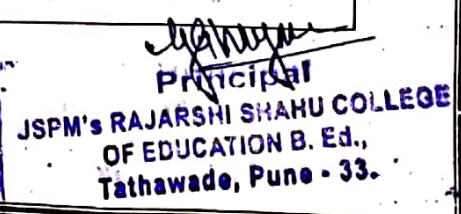 Principal
JSPM's RAJARSHI SHAHU COLLEGE
OF EDUCATION B. Ed.,
Tathawade, Pune - 33.